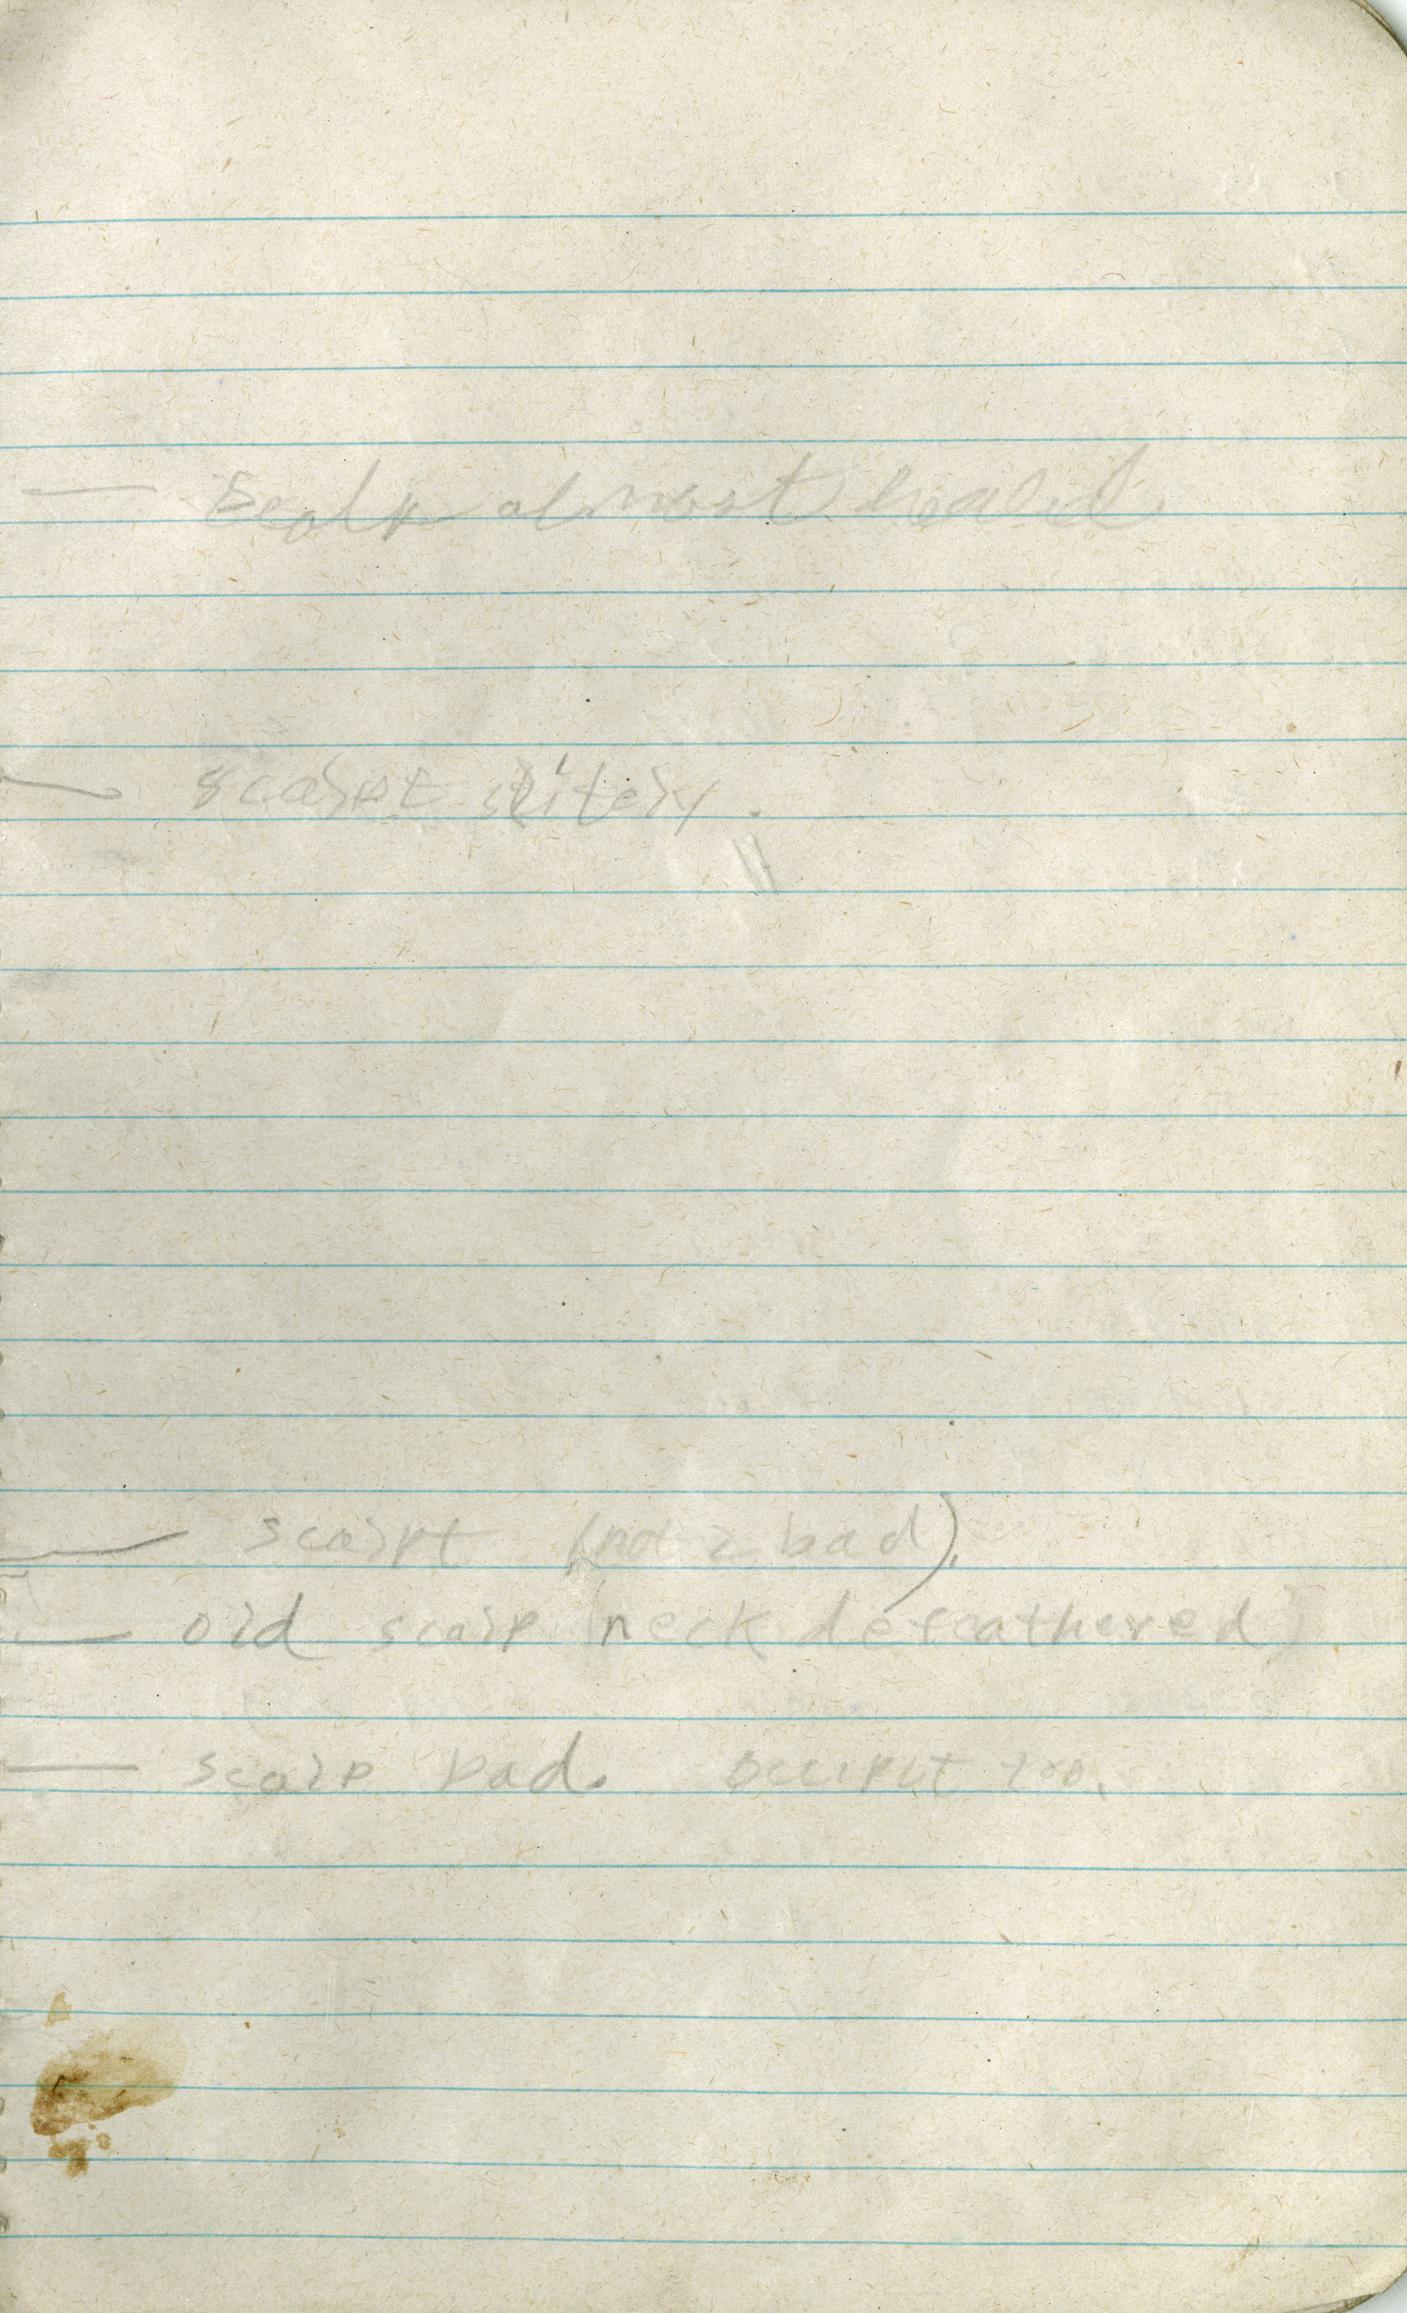 — Scalp almost healed.
— scalpt slitely.
— scalpt (not 2 bad).
— old scalp (neck defeathered)
— scalp bad. Occiput too.